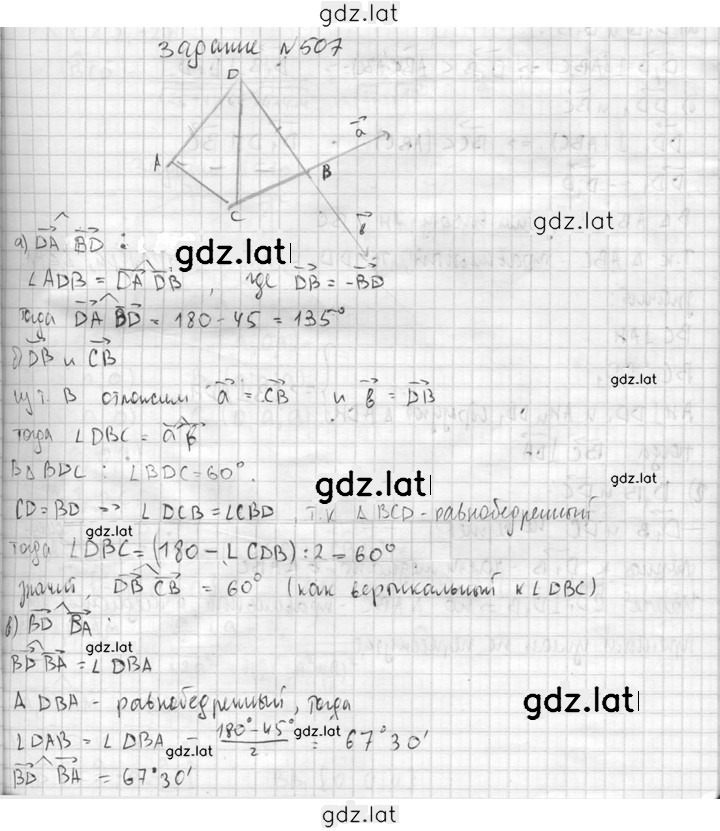 gdz.lat
Задание №507
D
A
B
C
a⃗
b⃗
gdz.lat
а) DA⃗ ^ BD⃗ :
gdz.lat
∠ADB = DA⃗ ^ DB⃗ , где DB⃗ = -BD⃗
тогда DA⃗ ^ BD⃗ = 180 - 45 = 135°
б) DB⃗ и CB⃗
gdz.lat
из т. B отложим a⃗ = CB⃗ и b⃗ = DB⃗
тогда ∠DBC = a⃗ ^ b⃗
В Δ BDC : ∠BDC = 60°.
gdz.lat
gdz.lat
CD = BD => ∠DCB = ∠CBD , т.к Δ BCD - равнобедренный
gdz.lat
тогда ∠DBC = (180 - ∠CDB) : 2 = 60°
значит, DB⃗ ^ CB⃗ = 60° (как вертикальный к ∠DBC)
в) BD⃗ ^ BA⃗ :
gdz.lat
BD⃗ ^ BA⃗ = ∠DBA
Δ DBA - равнобедренный, тогда
gdz.lat
∠DAB = ∠DBA = (180° - 45°)/2 = 67°30'
gdz.lat
gdz.lat
BD⃗ ^ BA⃗ = 67°30'
gdz.lat